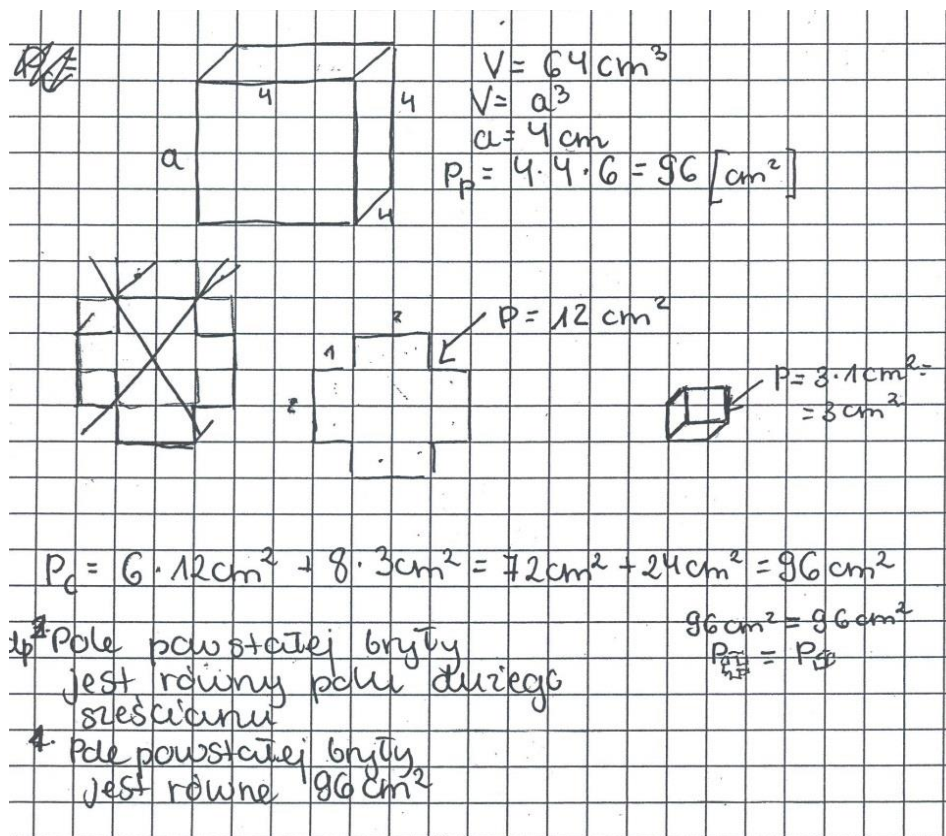 V = 64 cm³
V = a³
a = 4 cm
Pp = 4·4·6 = 96 [cm²]
4
4
a
4
P = 12 cm²
2
1
2
P = 3·1cm² =
= 3cm²
Pc = 6·12cm² + 8·3cm² = 72cm² + 24cm² = 96cm²
96cm² = 96cm²
P = P
2. Pole powstałej bryły
jest równy polu dużego
sześcianu
1. Pole powstałej bryły
jest równe 96 cm²